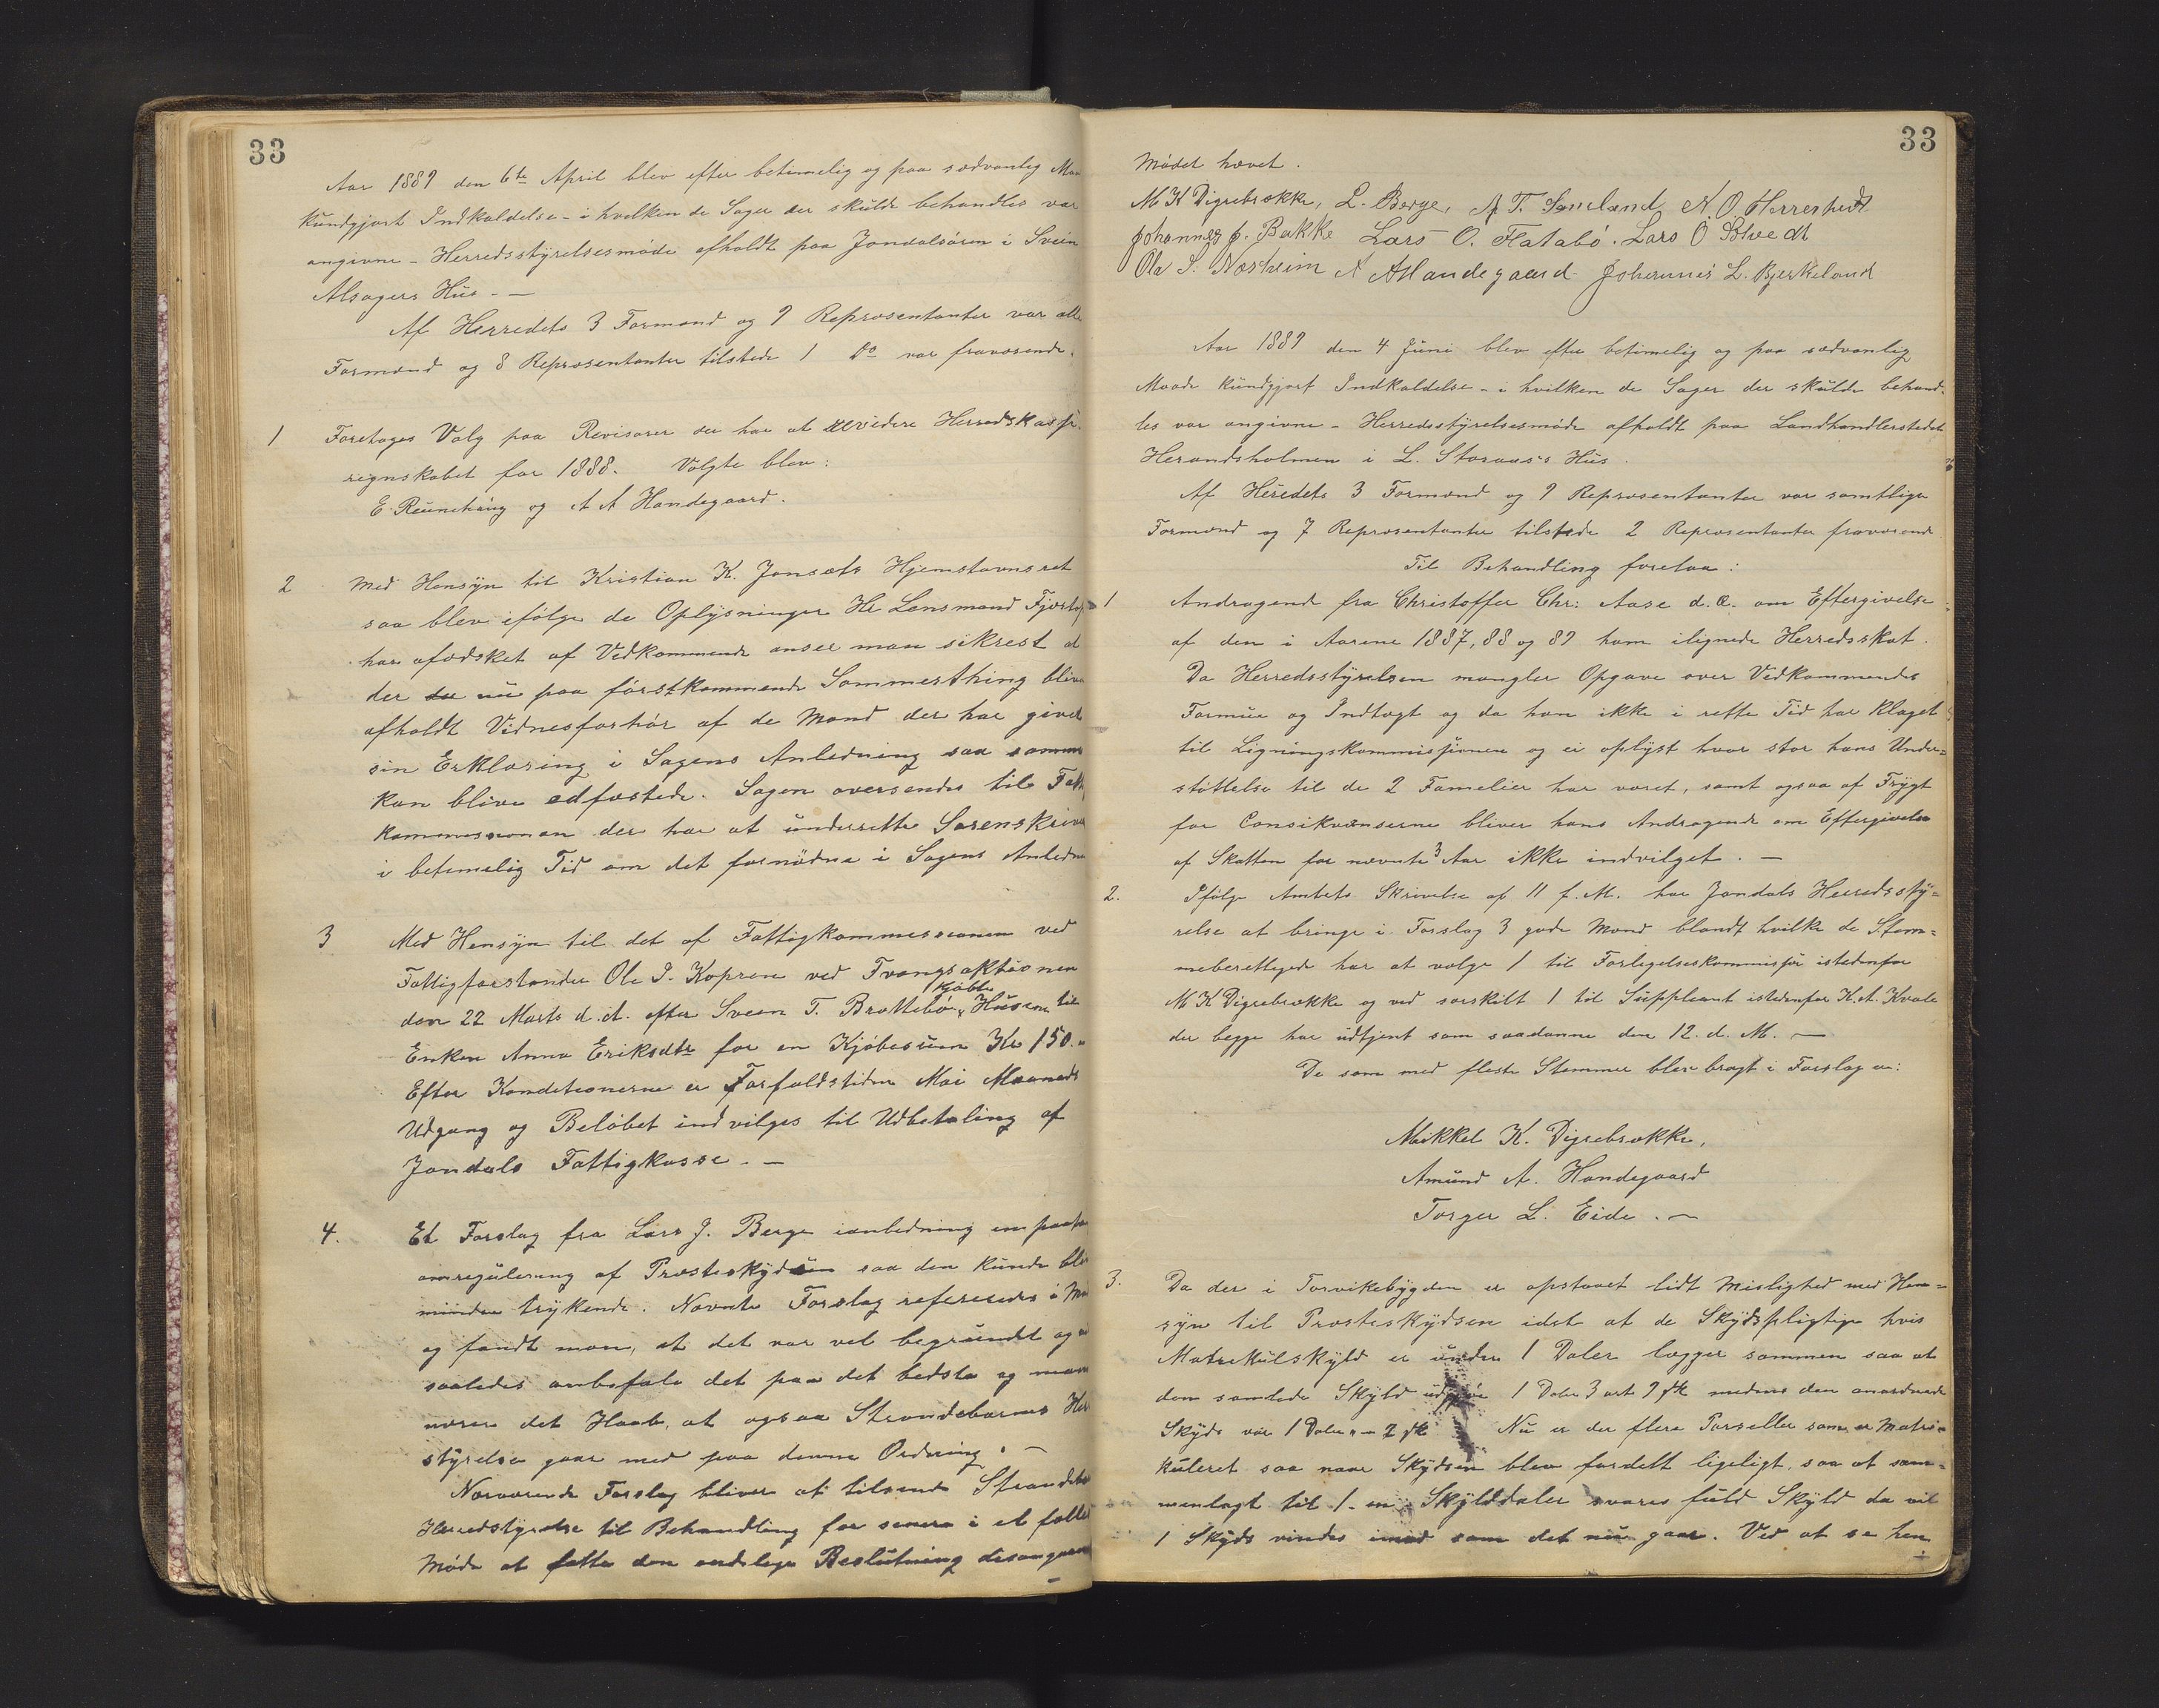 33
Aar 1889 den 6te April blev efter betimelig og paa sædvanlig Maa
kundgjort Indkaldelse - i hvilken de Sager der skulde behandles var
angivne - Herredsstyrelsesmøde afholdt paa Jondalsøren i Svein
Alsagers Hus. —
Af Herredets 3 Formænd og 9 Repræsentanter var alle
Formænd og 8 Repræsentanter tilstede 1 Do var fraværende.
1 Foretages Valg paa Revisorer der har at revidere Herredskasse
regnskabet for 1888. Valgte blev:
E. Reuncháug og A A Handegaard.
2 Med Hensyn til Kristian K. Jonsæts Hjemstavnsret
saa blev ifølge de Oplysninger Hr Lensmand
har afædsket af Vedkommende anser man sikrest at
der der nu paa førstkommende Sommerthing blive
afholdt Vidnesforhør af de Mænd der har givet
sin Erklæring i Sagens Anledning saa samme
kan blive edfæstede. Sagen oversendes til Fatt
kommissionen der har at underrette Sorenskriver
i betimelig Tid om det fornødne i Sagens Anledn
3 Med Hensyn til det af Fattigkommissionen ved
Fattigforstander Ole I. Kopren ved Tvangsaktionen
den 22 Marts d. A. efter Sveen T. Brattebø kjøbte Husene til
Enken Anna Eriksdtr for en Kjøbesum Kr 150.
Efter Konditionerne er Forfaldstiden Mai Maaneds
Udgang og Beløbet indvilges til Udbetaling af
Jondals Fattigkasse. —
4. Et Forslag fra Lars J. Berge ianledning en
omregulering af Præsteskydsen saa den kunde bli
mindre trykende. Nævnte Forslag refereredes i Mø
og fandt man, at det var vel begrundet og
saaledes anbefale det paa det bedste og man
nærer det Haab, at ogsaa Strandebarms Her
styrelse gaar med paa denne Ordning. —
Nærværende Forslag bliver at tilsende Strandeb
Herredstyrelse til Behandling for senere i et fælles
Møde at fatte den endelige Beslutning desangaaende
33
Mødet hævet.
M K Digrebrække, L. Berge, A T. Samland N. O. Herrestvedt
Johannes J. Bakke Lars O. Flatabø. Lars O Solvedt
Ole S. Næsheim A A Handegaard Johannes L. Bjerkeland
Aar 1889 den 4 Juni blev efter betimelig og paa sædvanlig
Maade kundgjort Indkaldelse - i hvilken de Sager der skulde behand-
les var angivne - Herredsstyrelsesmøde afholdt paa Landhandlerstedet
Herandsholmen i L. Storaas's Hus.
Af Heredets 3 Formænd og 9 Repræsentanter var samtlige
Formænd og 7 Repræsentanter tilstede 2 Repræsentanter fraværende
Til Behandling foretaa:
1 Andragende fra Christoffer Chr: Aase d.æ. om Eftergivelse
af den i Aarene 1887, 88 og 89 ham ilignede Herredsskat.
Da Herredsstyrelsen mangler Opgave over Vedkommendes
Formue og Indtægt og da han ikke i rette Tid har klaget
til Ligningskommissjonen og ei oplyst hvor stor hans Under=
støttelse til de 2 Familier har været, samt ogsaa af Frygt
for Consikvænserne bliver hans Andragende om Eftergivelse
af Skatten for nævnte 3 Aar ikke indvilget. —
2. Ifølge Amtets Skrivelse af 11 f. M. har Jondals Herredssty=
relse at bringe i Forslag 3 gode Mænd blandt hvilke de Stem=
meberettigede har at vælge 1 til Forligelseskommissær istedenfor
M K Digrebrække og ved særskilt 1 til Suppleant istedenfor K. A. Kvale
der begge har udtjent som saadanne den 12. d. M. —
De som med fleste Stemmer blev bragt i Forslag er:
Mikkel K. Digrebrække,
Amund A. Handegaard
Torger L. Eide. —
3. Da der i Torvikebygden er opstaaet lidt Mislighed med Hen=
syn til Præsteskydsen idet at de Skydspligtige hvis
Matrikulskyld er under 1 Daler lægger sammen saa at
den samlede Skyld udgjøre 1 Daler 3 ort 9 sk medens den anordnede
Skyds var 1 Daler " - 2 sk Nu er der flere Parseller som er Matri=
kuleret saa naar Skydsen blev fordelt ligeligt, saa at sam=
menlagt til 1-en Skylddaler svares fuld Skyld da vil
1 Skyds vindes imod som det nu gaar. Ved at se hen